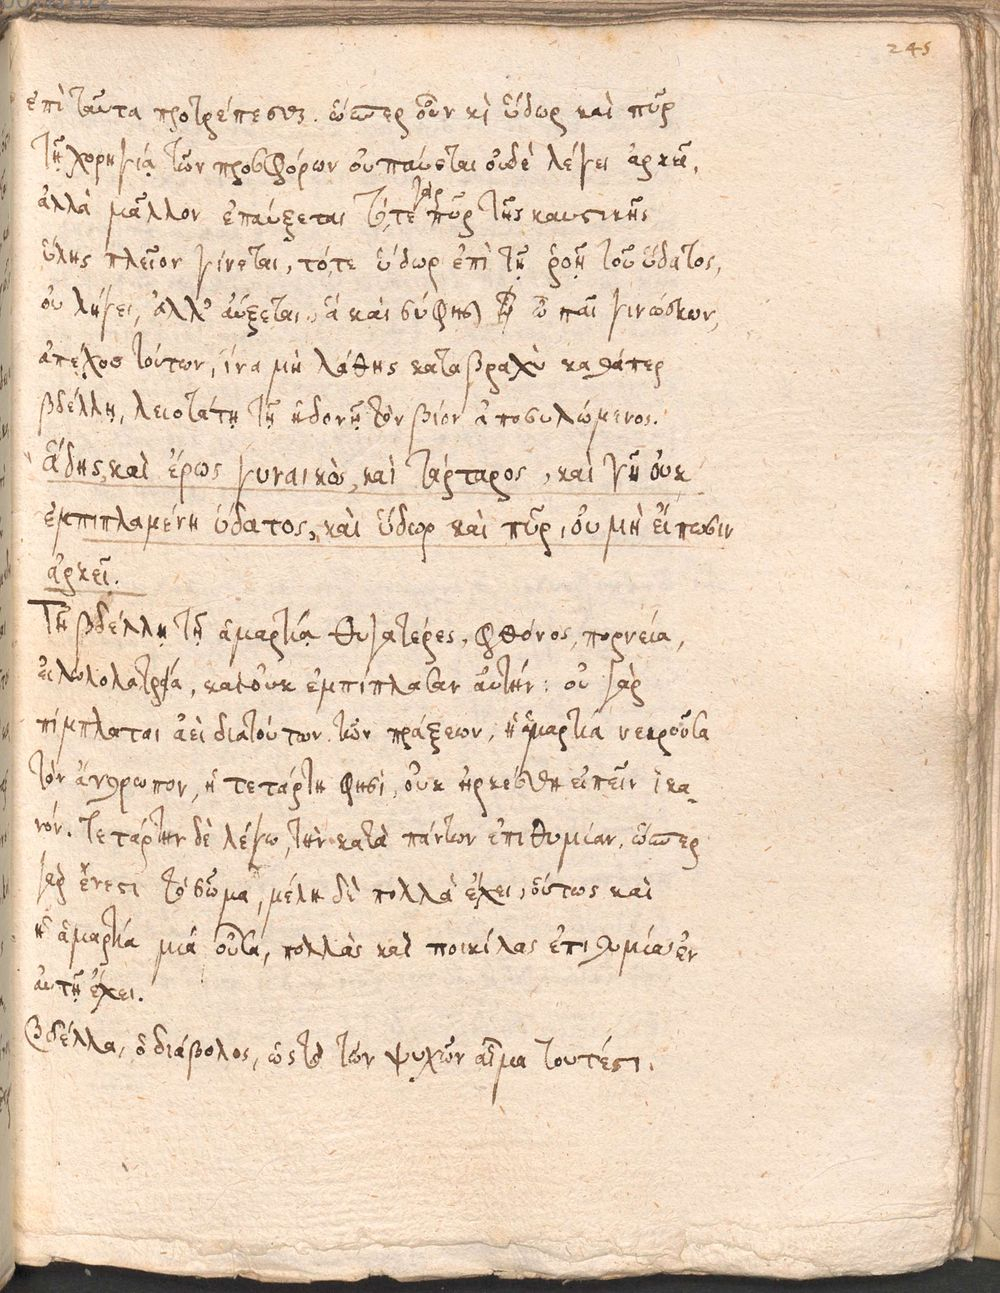 245
ἐπὶ ταῦτα προτρέπεσθαι. ὥσπερ οὖν κὶ ὕδωρ καὶ πῦρ
τῇ χορηγίᾳ τῶν προσφόρων οὐ παύεται οὐδὲ λέγει ἀρκεῖ,
ἀλλὰ μᾶλλον ἐπαύξεται τό, τε γὰρ πῦρ τῆς καυστικῆς
ὕλης πλεῖον γίνεται, τό, τε ὕδωρ ἐπὶ τῇ ῥοῇ τοῦ ὕδατος,
οὐ λήγει, ἀλλ' αὔξεται. ἃ καὶ σύ ὦ παῖ γινώσκων,
ἀπέχου τούτων, ἵνα μὴ λάθῃς καταβραχὺ καθάπερ
βδέλλῃ, λειοτάτῃ τῇ ἡδονῇ τὸν βίον ἀποσυλώμενος.
ἅδης, καὶ ἔρως γυναικὸς, καὶ τάρταρος, καὶ γῆ οὐκ
ἐμπιπλαμένη ὕδατος, καὶ ὕδωρ καὶ πῦρ, οὐ μὴ εἴπωσιν
ἀρκεῖ.
Τῇ βδέλλῃ τῇ ἁμαρτίᾳ θυγατέρες, φθόνος, πορνεία,
εἰδωλολατρία, καὶ οὐκ ἐμπιπλᾶσαν αὐτήν: οὐ γὰρ
πίμπλαται ἀεὶ διατούτων τῶν πράξεων, ἡ ἁμαρτία νεκροῦσα
τὸν ἄνθρωπον, ἡ τετάρτη φησὶ, οὐκ ἠρκέσθη εἰπεῖν ἱκα-
νόν. τετάρτην δὲ λέγω, τὴν κατὰ πάντων ἐπιθυμίαν, ὥσπερ
γὰρ ἕν ἐστι τὸ σῶμα, μέλη δὲ πολλὰ ἔχει, οὕτως καὶ
ἡ ἁμαρτία μιὰ οὖσα, πολλὰς καὶ ποικίλας ἐπιθυμίας ἐν
αὐτῇ ἔχει.
Βδέλλα, ὁ διάβολος, ὡς τὸ τῶν ψυχῶν αἷμα τουτέστι.